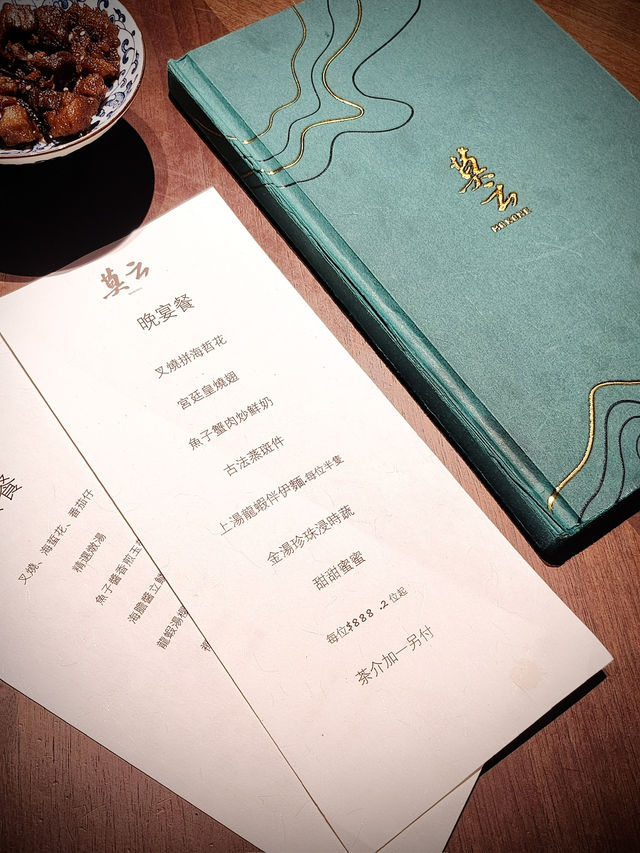 莫云
莫云
晚宴餐
叉燒拼海哲花
宮廷皇燒翅
魚子蟹肉炒鮮奶
古法蒸斑件
上湯龍蝦伴伊麵-每位半隻
金湯珍珠浸時蔬
甜甜蜜蜜
每位$888 .2 位起
茶介加一另付
餐
叉燒、海哲花、番茄仔
精選燉湯
魚子醬香煎玉
海膽醬立
龍蝦湯